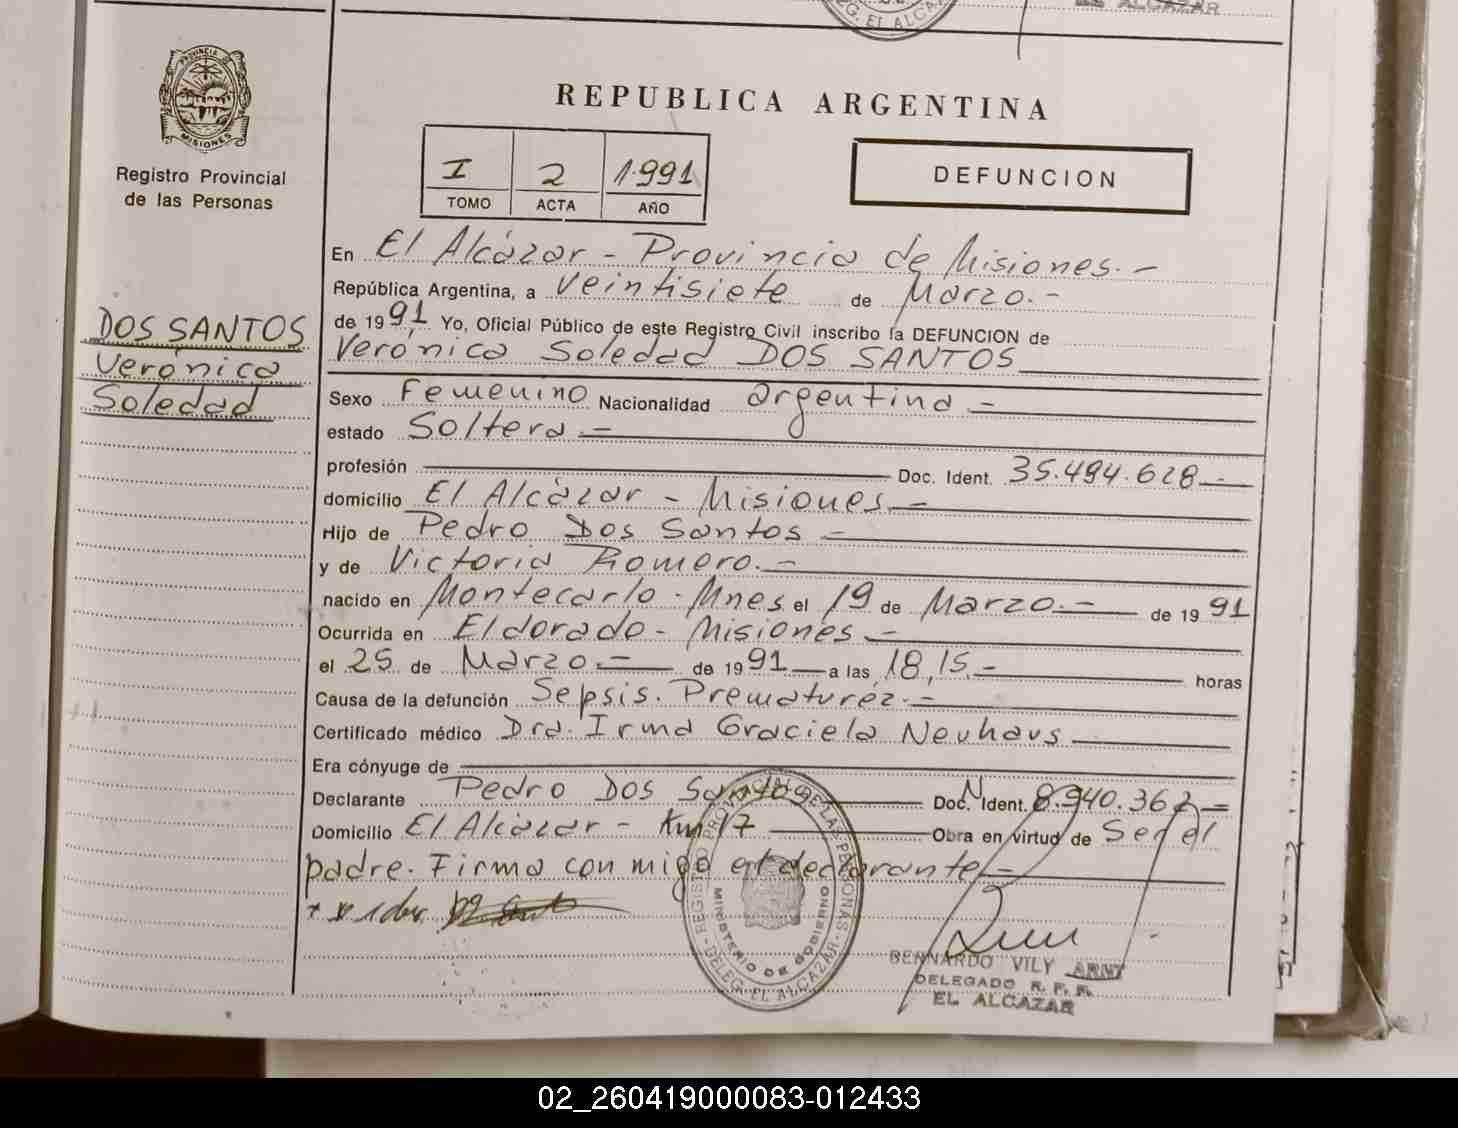 DELEG. EL ALCAZAR
EL ALCAZAR
PROVINCIA
MISIONES
Registro Provincial
de las Personas
REPUBLICA ARGENTINA
I 2 1.991
TOMO ACTA AÑO
DEFUNCION
DOS SANTOS
Verónica
Soledad
En El Alcázar - Provincia de Misiones.-
República Argentina, a veintisiete de Marzo.-
de 1991. Yo, Oficial Público de este Registro Civil inscribo la DEFUNCION de
Verónica Soledad DOS SANTOS
Sexo Femenino Nacionalidad argentina -
estado Soltera.-
profesión Doc. Ident. 35.494.628.-
domicilio El Alcázar - Misiones.-
Hijo de Pedro Dos Santos -
y de Victoria Romero.-
nacido en Montecarlo - Mnes el 19 de Marzo.- de 1991
Ocurrida en Eldorado - Misiones -
el 25 de Marzo.- de 1991 a las 18,15.- horas
Causa de la defunción Sepsis. Prematuréz.-
Certificado médico Dra. Irma Graciela Neuhaus
Era cónyuge de
Declarante Pedro Dos Santos Doc. Ident. 8.940.362 -
Domicilio El Alcázar - Km 17 Obra en virtud de Ser el
padre. Firma con migo el declarante.-
REGISTRO PROVINCIAL DE LAS PERSONAS - DELEG. EL ALCAZAR -
MINISTERIO DE GOBIERNO
BERNARDO VILY ARNT
DELEGADO R. P. P.
EL ALCAZAR
02_260419000083-012433